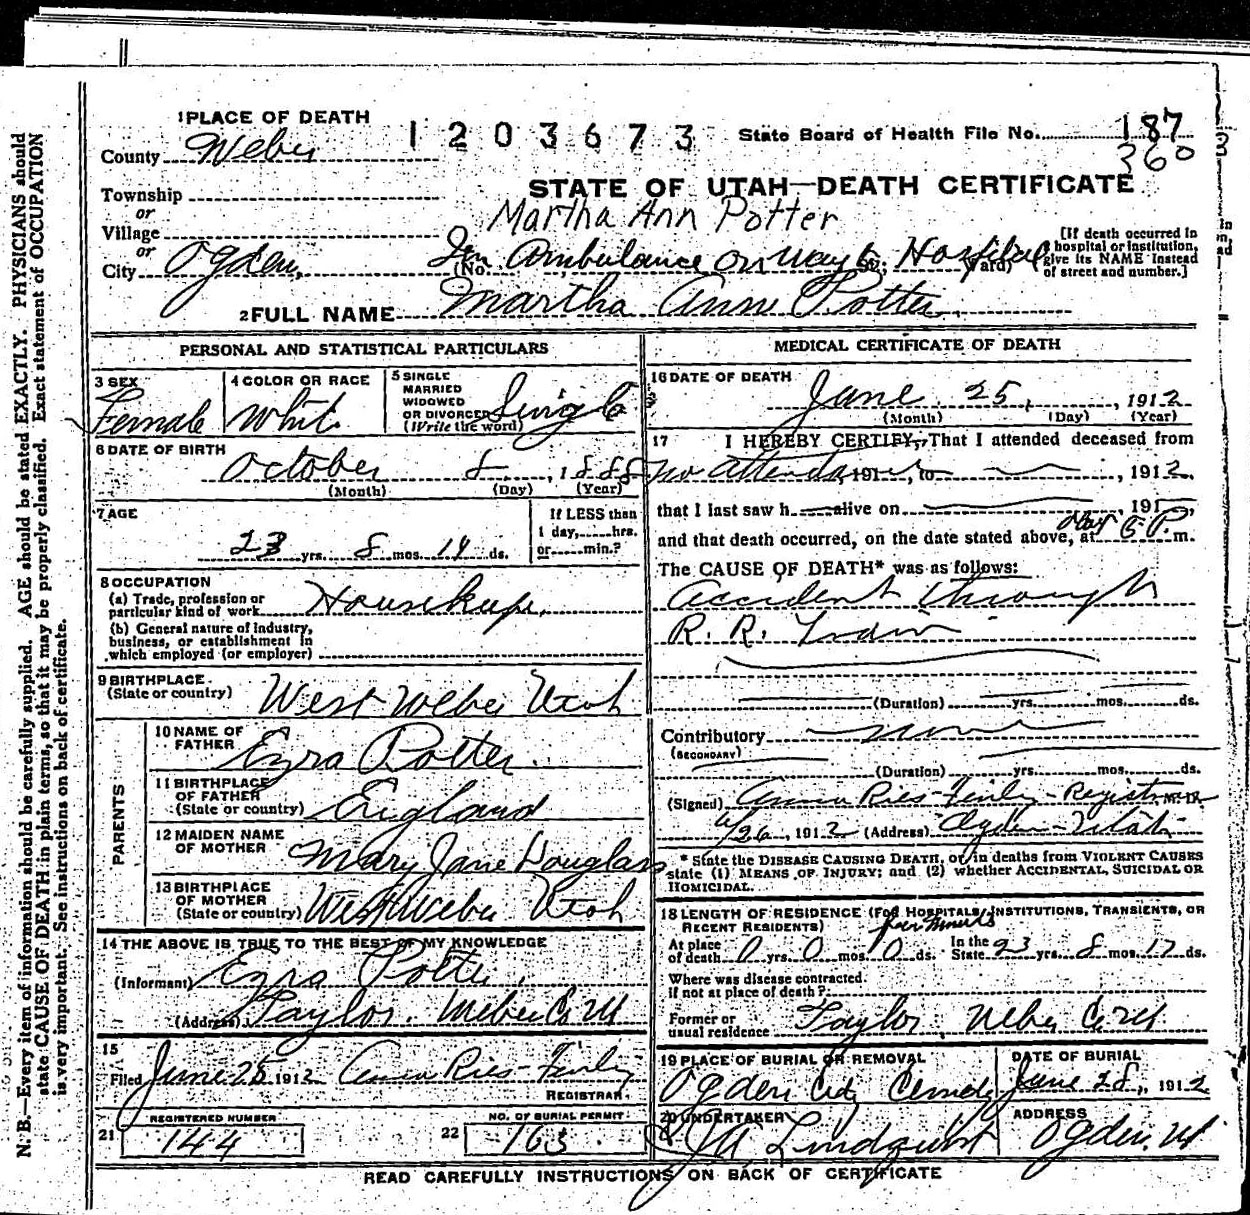 1 PLACE OF DEATH
1203673
State Board of Health File No. 187
360
County Weber
STATE OF UTAH—DEATH CERTIFICATE
Township
or
Martha Ann Potter
Village
or
City Ogden,
(No. In Ambulance on way to St; Hospital Ward)
[If death occurred in
a hospital or institution,
give its NAME instead
of street and number.]
2 FULL NAME Martha Ann Potter
PERSONAL AND STATISTICAL PARTICULARS
3 SEX
Female
4 COLOR OR RACE
White
5 SINGLE
MARRIED
WIDOWED
OR DIVORCED
(Write the word)
Single
6 DATE OF BIRTH
October 8, 1888
(Month) (Day) (Year)
7 AGE
23 yrs. 8 mos. 14 ds.
If LESS than
1 day,......hrs.
or......min.?
8 OCCUPATION
(a) Trade, profession or
particular kind of work Housekeeper
(b) General nature of industry,
business, or establishment in
which employed (or employer)
9 BIRTHPLACE
(State or country)
West Weber Utah
PARENTS
10 NAME OF
FATHER
Ezra Potter
11 BIRTHPLACE
OF FATHER
(State or country)
England
12 MAIDEN NAME
OF MOTHER
Mary Jane Douglass
13 BIRTHPLACE
OF MOTHER
(State or country)
West Weber Utah
14 THE ABOVE IS TRUE TO THE BEST OF MY KNOWLEDGE
(Informant) Ezra Potter
(Address) Taylor, Weber Co Ut
15
Filed June 28 1912 Anna Ries-Finley
REGISTRAR.
REGISTERED NUMBER
21 144
NO. OF BURIAL PERMIT
22 163
MEDICAL CERTIFICATE OF DEATH
16 DATE OF DEATH
June 25, 1912
(Month) (Day) (Year)
17 I HEREBY CERTIFY, That I attended deceased from
no attendant, 191 , to , 1912.
that I last saw h alive on , 191
and that death occurred, on the date stated above, at P. m.
The CAUSE OF DEATH* was as follows:
Accident through
R. R. Train
(Duration) yrs. mos. ds.
Contributory none
(SECONDARY)
(Duration) yrs. mos. ds.
(Signed) Anna Ries-Finley-Registrar M. D.
6/26, 1912 (Address) Ogden-Utah
* State the DISEASE CAUSING DEATH, or in deaths from VIOLENT CAUSES
state (1) MEANS OF INJURY; and (2) whether ACCIDENTAL, SUICIDAL OR
HOMICIDAL.
18 LENGTH OF RESIDENCE (FOR HOSPITALS, INSTITUTIONS, TRANSIENTS, OR
RECENT RESIDENTS)
At place
of death 0 yrs. 0 mos. 0 ds.
In the
State 23 yrs. 8 mos. 17 ds.
Where was disease contracted
if not at place of death?
Former or
usual residence Taylor, Weber Co Ut
19 PLACE OF BURIAL OR REMOVAL
Ogden City Cemetery
DATE OF BURIAL
June 28, 1912
20 UNDERTAKER
Lindquist
ADDRESS
Ogden, Ut
READ CAREFULLY INSTRUCTIONS ON BACK OF CERTIFICATE
N. B.—Every item of information should be carefully supplied. AGE should be stated EXACTLY. PHYSICIANS should
state CAUSE OF DEATH in plain terms, so that it may be properly classified. Exact statement of OCCUPATION
is very important. See instructions on back of certificate.